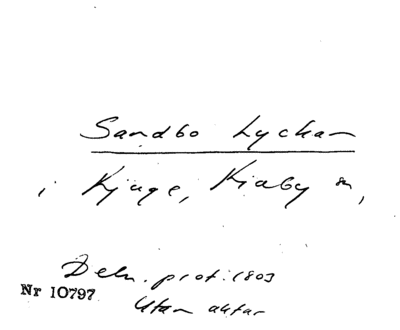 Sandbo Lyckan
i Kjuge, Kiaby sn,
Deln. prot. 1803
Nr 10797
Utan aktar